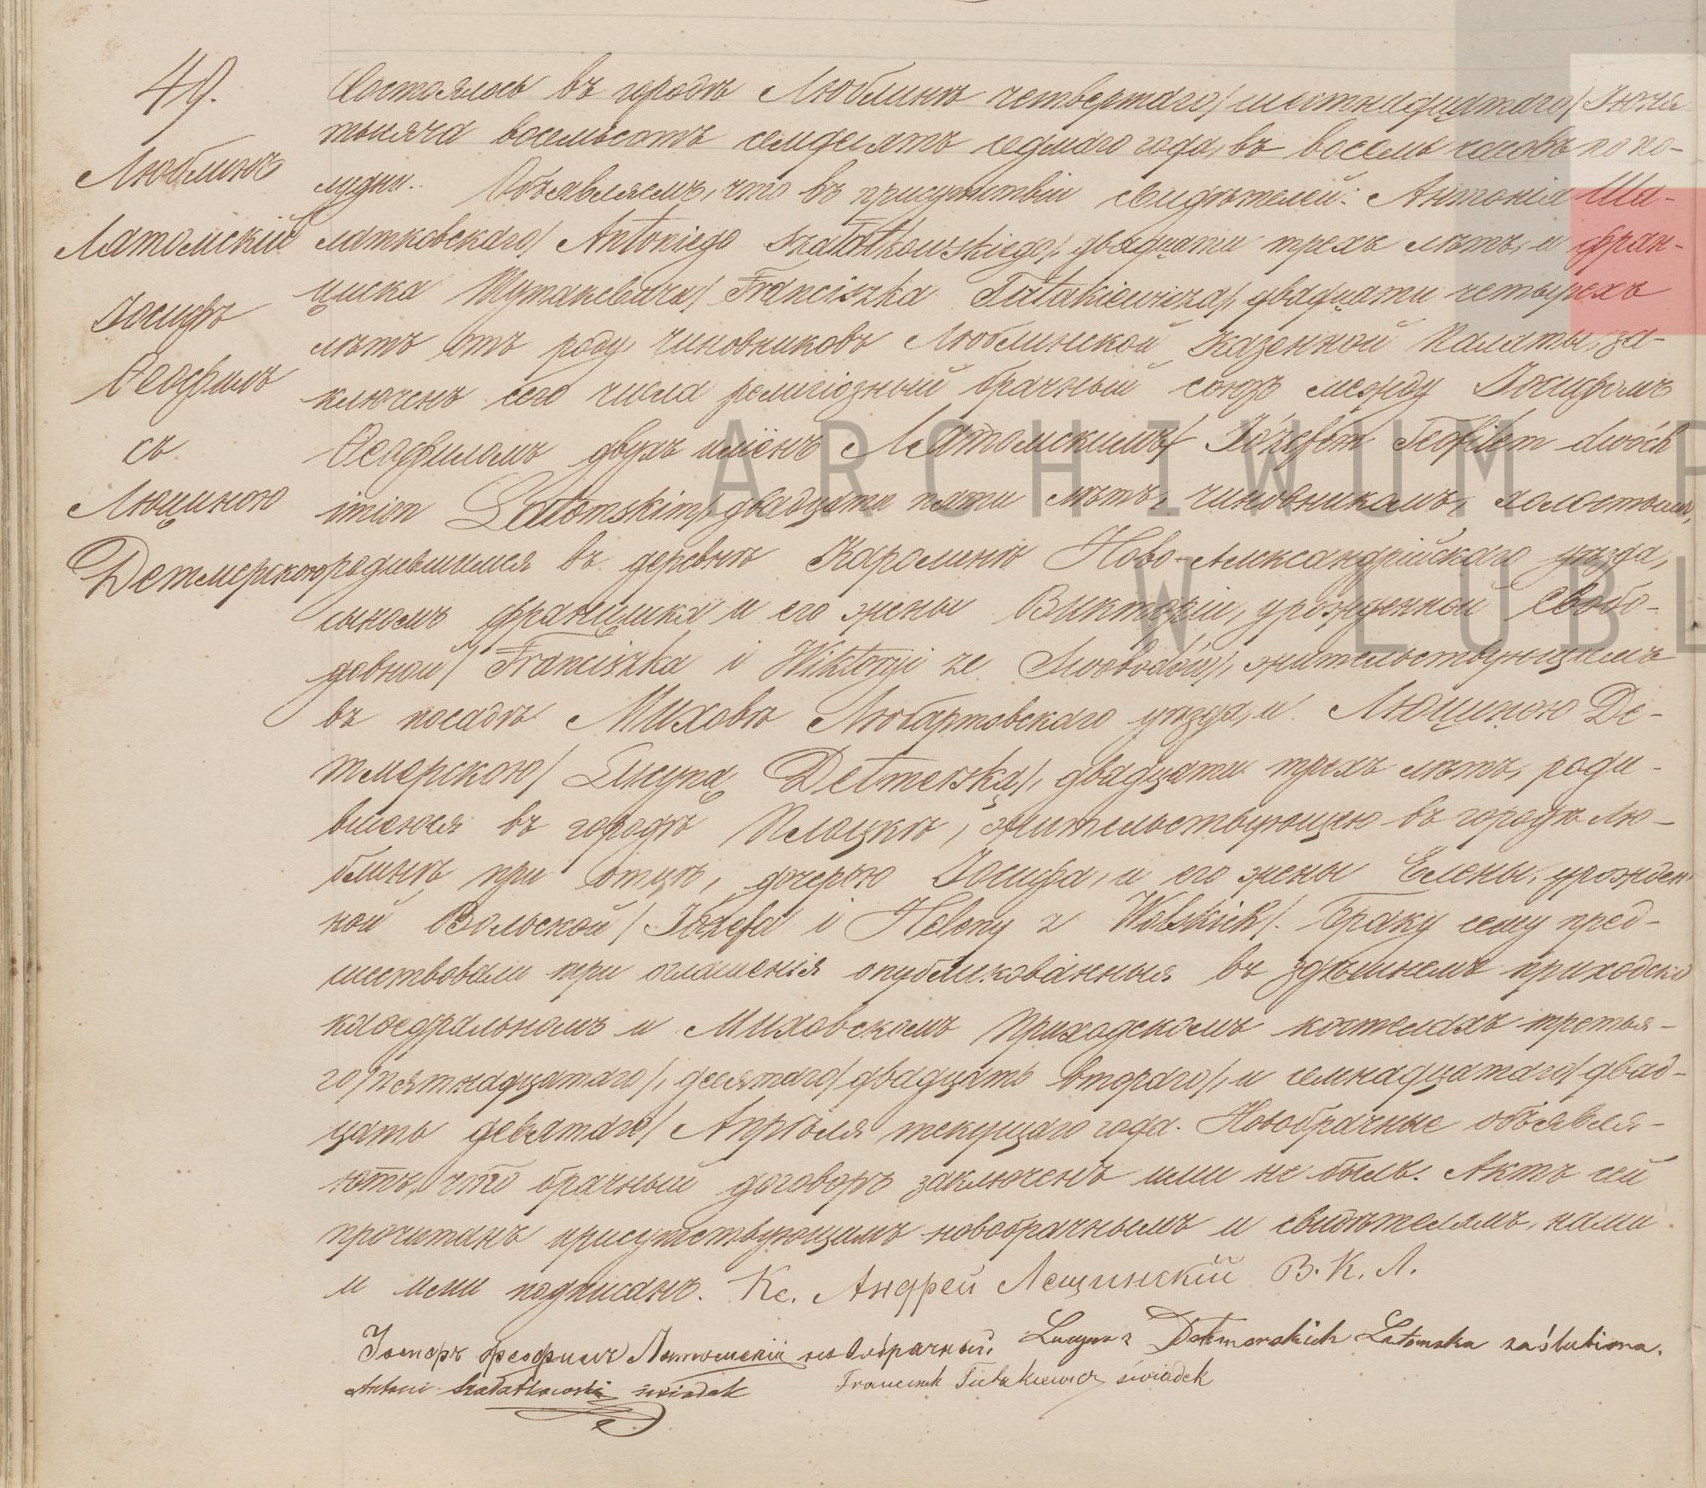 49.
Люблинъ
Латомскій
Іосифъ
Ѳеофилъ
съ
Люциною
Детмерскою
Состоялось въ городѣ Люблинѣ четвертаго/шестнадцатаго/Іюня
тысяча восемьсотъ семдесятъ седмаго года, въ восемь часовъ по по-
лудни. Объявляемъ, что въ присутствіи свидѣтелей: Антонія Ша-
латковскаго/Antoniego Szałatkowskiego/, двадцати трехъ лѣтъ, и Фран-
циска Тутакевича/Franciszka Tutakiewicza/, двадцати четырехъ
лѣтъ отъ роду, чиновниковъ Люблинской Казенной Палаты, за-
ключенъ сего числа религіозный брачный союзъ между Іосифомъ
Ѳеофиломъ двухъ имёнъ Латомскимъ/Józefem Teofilem dwóch
imion Latomskim/, двадцати пяти лѣтъ, чиновникомъ, холостымъ,
родившимся въ деревнѣ Каролинѣ Ново-Александрійскаго уѣзда,
сыномъ Францишка и его жены Викторіи, урожденной Свобо-
довной/Franciszka i Wiktoryi ze Swobodów/, жительствующимъ
въ посадѣ Миховѣ Любартовскаго уѣзда, и Люциною Де-
тмерскою/Lucyną Detmerską/, двадцати трехъ лѣтъ, роди-
вшеюся въ городѣ Плоцкѣ, жительствующею въ городѣ Лю-
блинѣ при отцѣ, дочерью Іосифа, и его жены Елены, урожден-
ной Вольской/Józefa i Heleny z Wolskich/. Браку сему пред-
шествовали три оглашенія опубликованныя въ здѣшнемъ приходско
каѳедральномъ и Миховскомъ приходскомъ костелахъ третья-
го/пятнадцатаго/, десятаго/двадцать втораго/, и семнадцатаго/двад-
цать девятаго/Апрѣля текущаго года. Новобрачные объявля-
ютъ, что брачный договоръ заключенъ ими не былъ. Актъ сей
прочитанъ присутствующимъ новобрачнымъ и свидѣтелямъ, нами
и ими подписанъ. Кс. Андрей Лещинскій В. К. Л.
Іосифъ Ѳеофилъ Латомскій новобрачный, Lucyna z Detmerskich Latomska zaślubiona.
Antoni Szałatkowski świadek Franciszek Tutakiewicz świadek
ARCHIWUM P
W LUBL